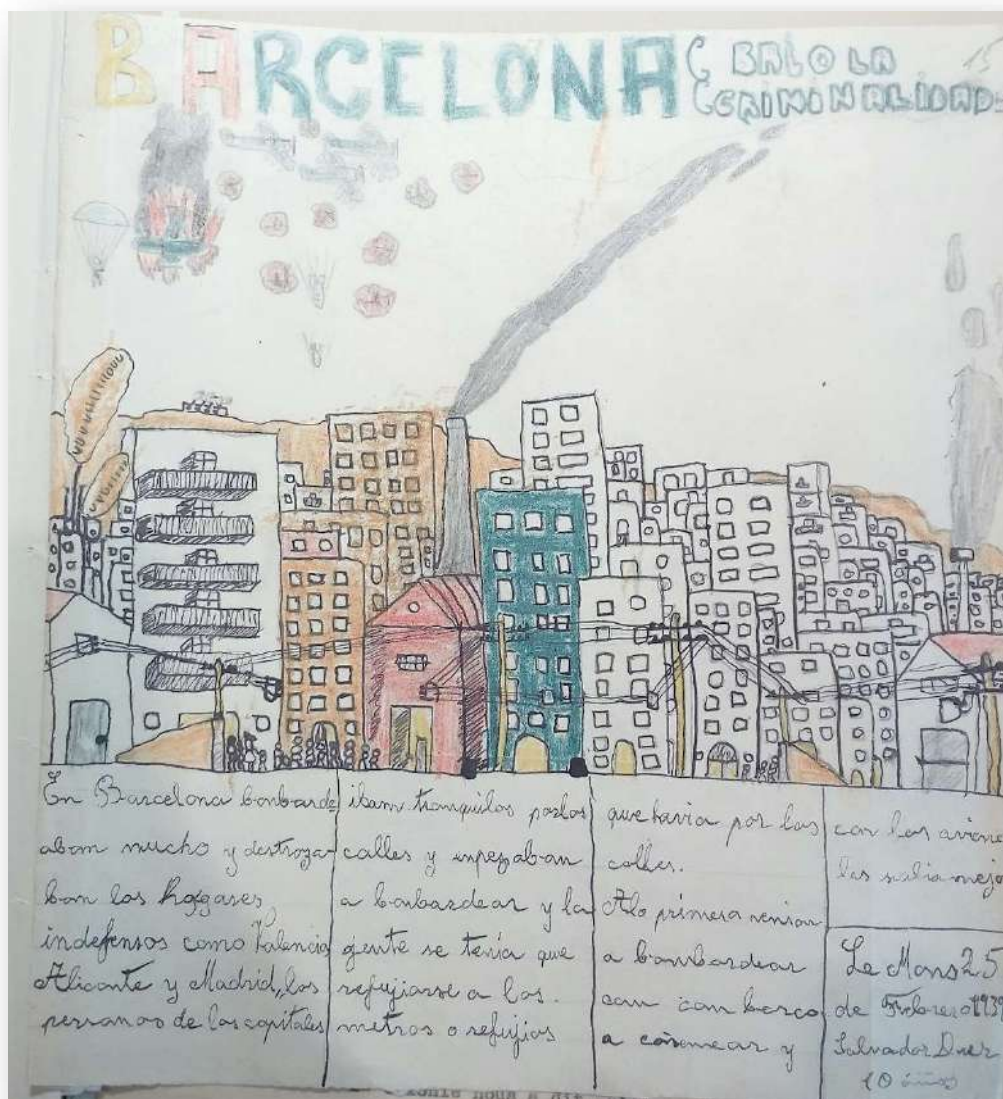 BARCELONA
BAJO LA
CRIMINALIDAD
15
En Barcelona bonbarde
aban mucho y destroza-
ban los hogares
indefensos como Valencia
Alicante y Madrid, las
personas de las capitales
iban tranquilos por las
calles y enpezaban
a bonbardear y la
gente se tenia que
refujiarse a los
metros o refujios
que havia por las
calles.
A lo primero venian
a bombardear
con con barco
a coronear y
con los avione
les salia mejo
Le Mans 25
de Febrero 1939
Salvador
10 años